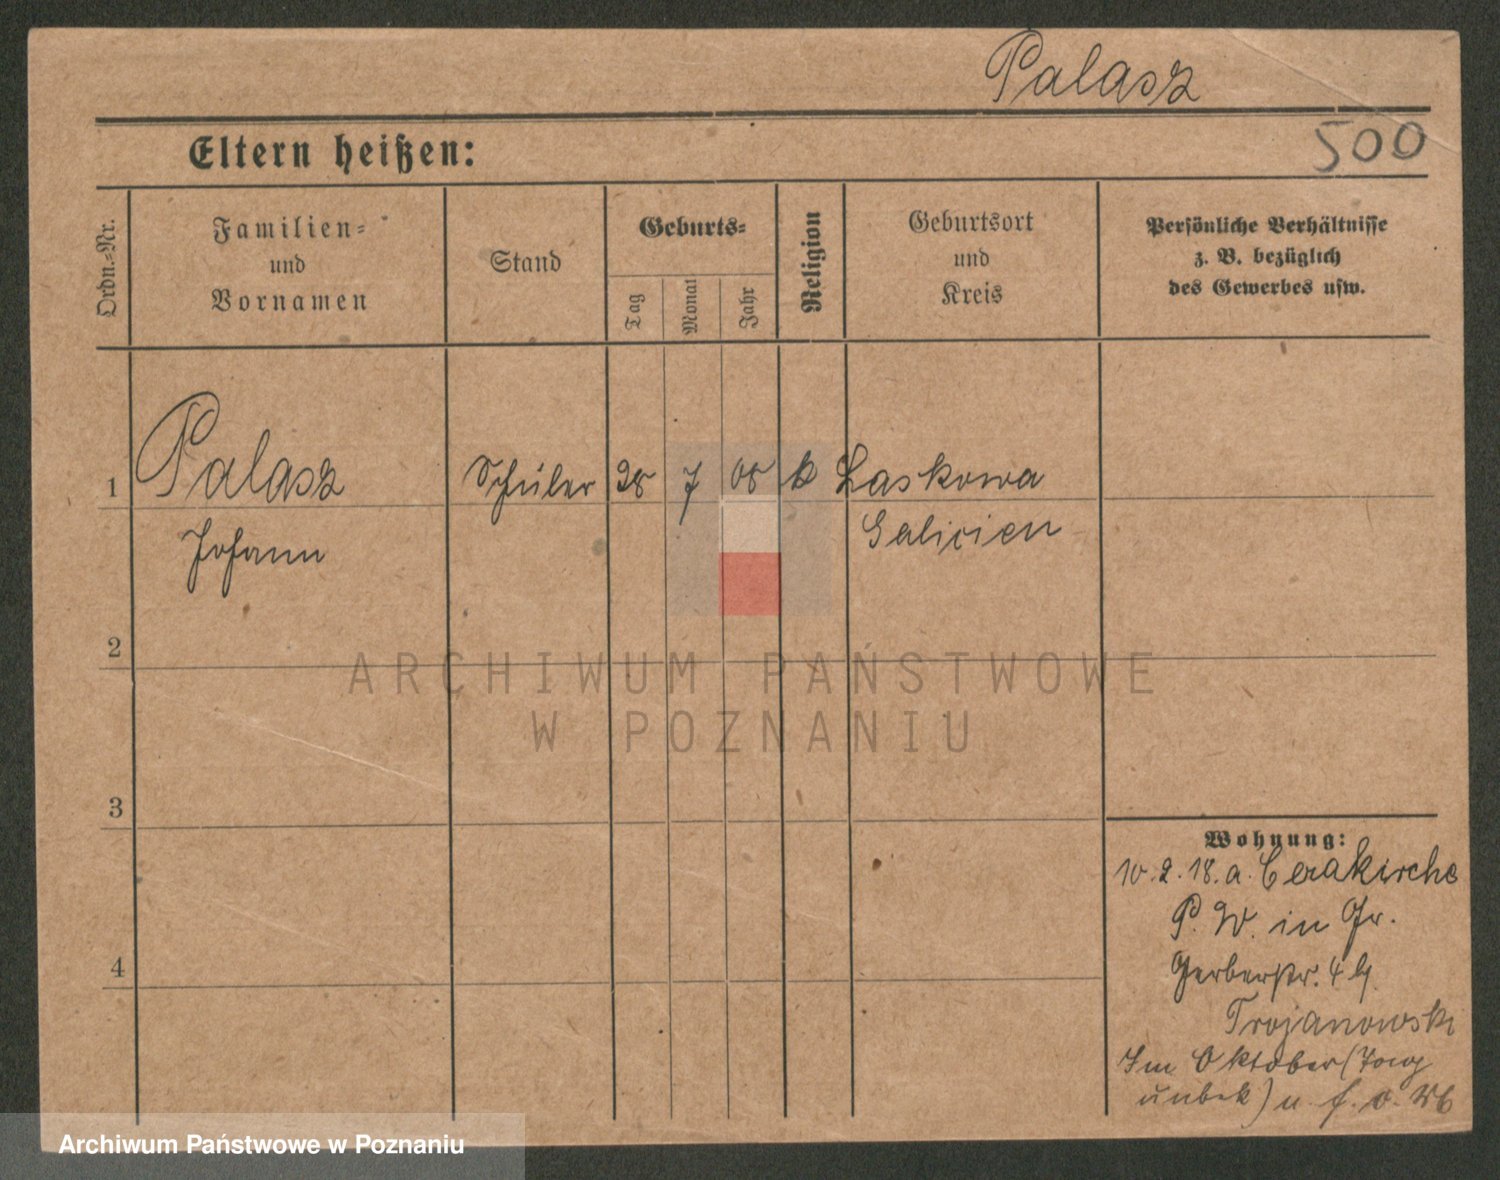 Palasz
500
Eltern heißen:
Ordn.-Nr.
Familien-
und
Vornamen
Stand
Geburts-
Tag
Monat
Jahr
Religion
Geburtsort
und
Kreis
Persönliche Verhältnisse
z. B. bezüglich
des Gewerbes usw.
1 Palasz Schüler 28 7 08 k Laskowa
Johann Galicien
2
3
4
Wohnung:
10.2.18. a.
P. W. in Gr.
Gerberstr. 4 b/
Trojanowski
Im Oktober (Tag
unbek) u. f. o.
ARCHIWUM PAŃSTWOWE
W POZNANIU
Archiwum Państwowe w Poznaniu